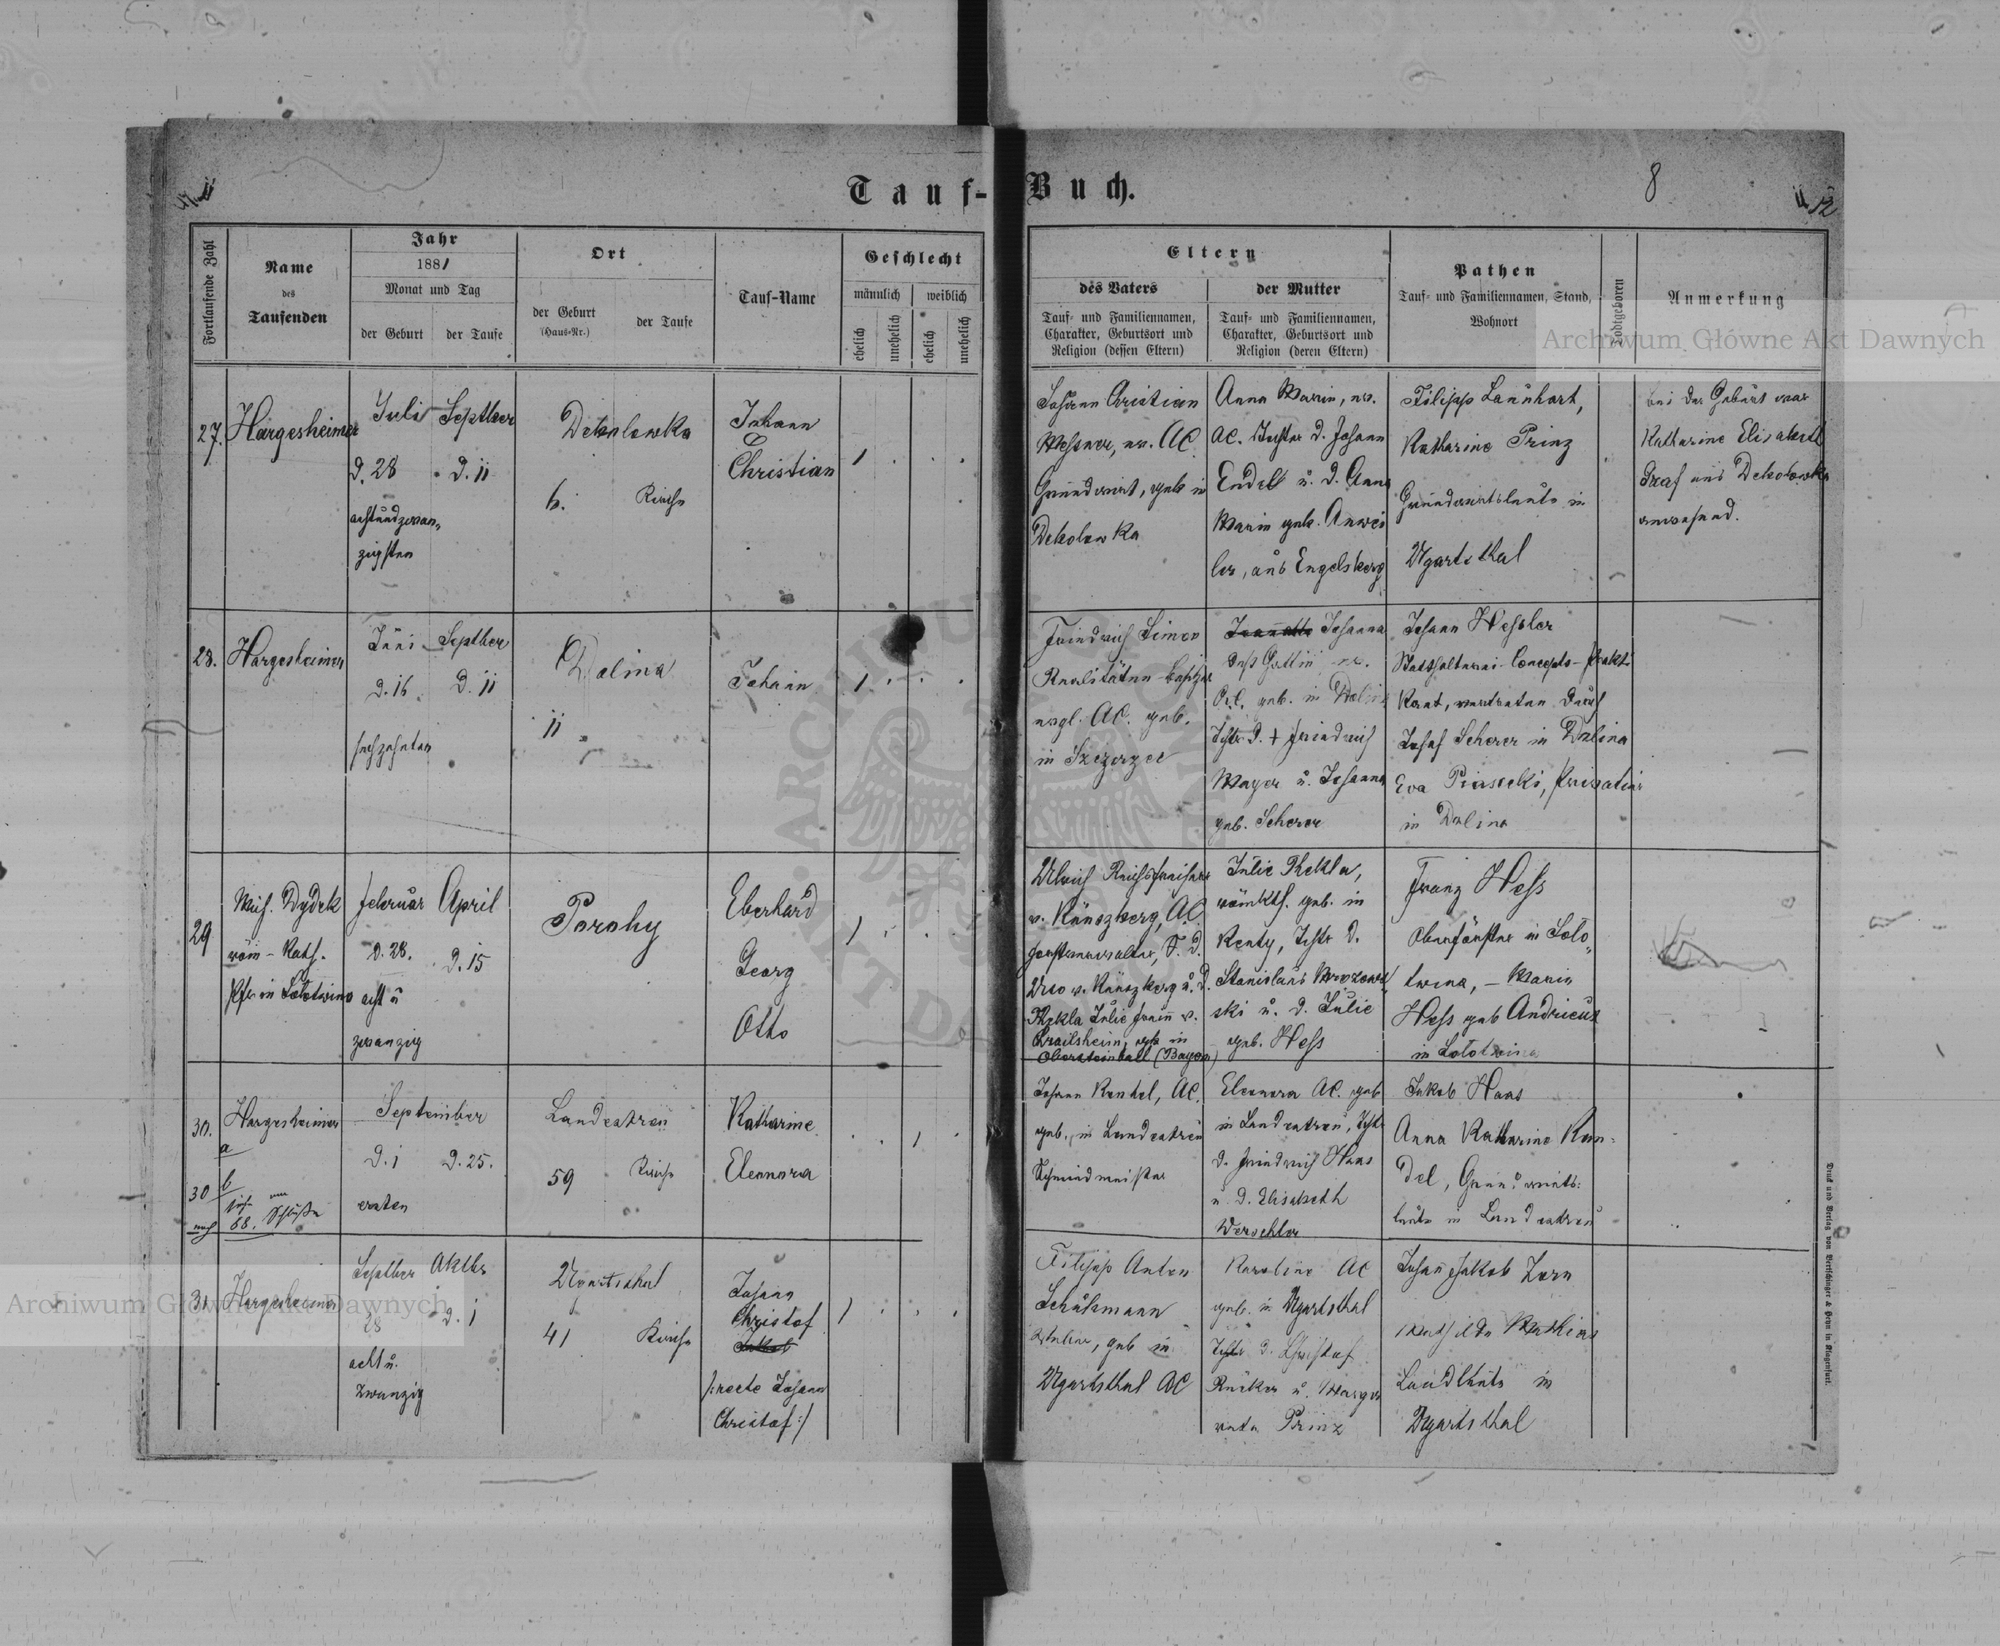 Tauf-Buch.
8
12
Fortlaufende Zahl
Name
des
Taufenden
Jahr
1881
Monat und Tag
der Geburt
der Taufe
Ort
der Geburt
(Haus-Nr.)
der Taufe
Tauf-Name
Geschlecht
männlich
weiblich
ehelich
unehelich
ehelich
unehelich
Eltern
des Vaters
Tauf- und Familiennamen,
Charakter, Geburtsort und
Religion (dessen Eltern)
der Mutter
Tauf- und Familiennamen,
Charakter, Geburtsort und
Religion (deren Eltern)
Pathen
Tauf- und Familiennamen, Stand,
Wohnort
Todtgeboren
Anmerkung
27.
Hargesheimer
Juli
d. 28
achtundzwan
zigsten
Septber
d. 11
Debolowka
6.
Kirche
Johann
Christian
1
Johann Christian
Messner, ev. AC
Grundwirt, geb. in
Debolowka
Anna Maria, ev.
AC. Tochter d. Johann
Endell u. d. Anna
Maria geb. Anwei
ler, aus Engelsberg
Filipp Launhart,
Katharine Prinz
Grundwirtsleute in
Ugartsthal
bei der Geburt war
Katharine Elisabeth
Graf aus Debolowka
anwesend.
28.
Hargesheimer
Juni
d. 16.
sechzehnten
Septber
d. 11
Dolina
11
Johann
1
Friedrich Simon
Realitäten-besitzer
evgl. AC. geb.
in
Johanna
dess Gattin ev.
AC. geb. in Dolina
Tchtr d. + Friedrich
Mayer u. Johanna
geb. Scherer
Johann Hessler
Statthalterei-Concepts-Prakti
kant, vertreten durch
Josef Scherer in Dolina
Eva Piasecki, Privatier
in Dolina
29
Mich. Dydek
röm-Kath.
Pfr. in Solotwina
Februar
d. 28.
acht u
zwanzig
April
d. 15
Porohy
Eberhard
Georg
Otto
1
Ulrich Reichsfreiherr
v. Künszberg, AC
Forstverwalter, S. d.
v. Künszberg u. d.
Thekla Julie Freiin v.
Crailsheim, geb in
Obersteinball (Bayern)
Julie Thekla,
römkth. geb. in
Kenty, Tchtr d.
Stanislaus
ski u. d. Julie
geb. Hess
Franz Hess
Oberförster in Soło
twina, - Maria
Hess geb Andricus
in Sołotwina
30.
a
Hargesheimer
30 b
nach 68. Schlusse
September
d. 1
d. 25.
ersten
Landestreu
59
Kirche
Katharine
Eleonora
1
Johann Kandel, AC.
geb. in Landestreu
Schmiedmeister
Eleonora AC. geb
in Landestreu, Tchtr
d. Friedrich Haas
u. d. Elisabeth
Jakob Haas
Anna Katharine Kan-
del, Grundwirts-
leute in Landestreu
31
Hargesheimer
Septber
28
acht u.
zwanzig
Aktbr
d. 1
Ugartsthal
41
Kirche
Johann
Christof
Jakob
/:recte Johann
Christof:/
1
Filipp Anton
Schuhmann
geb in
Ugartsthal AC
Karoline AC
geb. in Ugartsthal
Tchtr d. Christof
Rücker u. Marga
reta Prinz
Johann Jakob Zorn
Mathilde Mathias
Landleute in
Ugartsthal
Druck und Verlag von Bertschinger & Heyn in Klagenfurt.
Archiwum Główne Akt Dawnych
Archiwum Główne Akt Dawnych